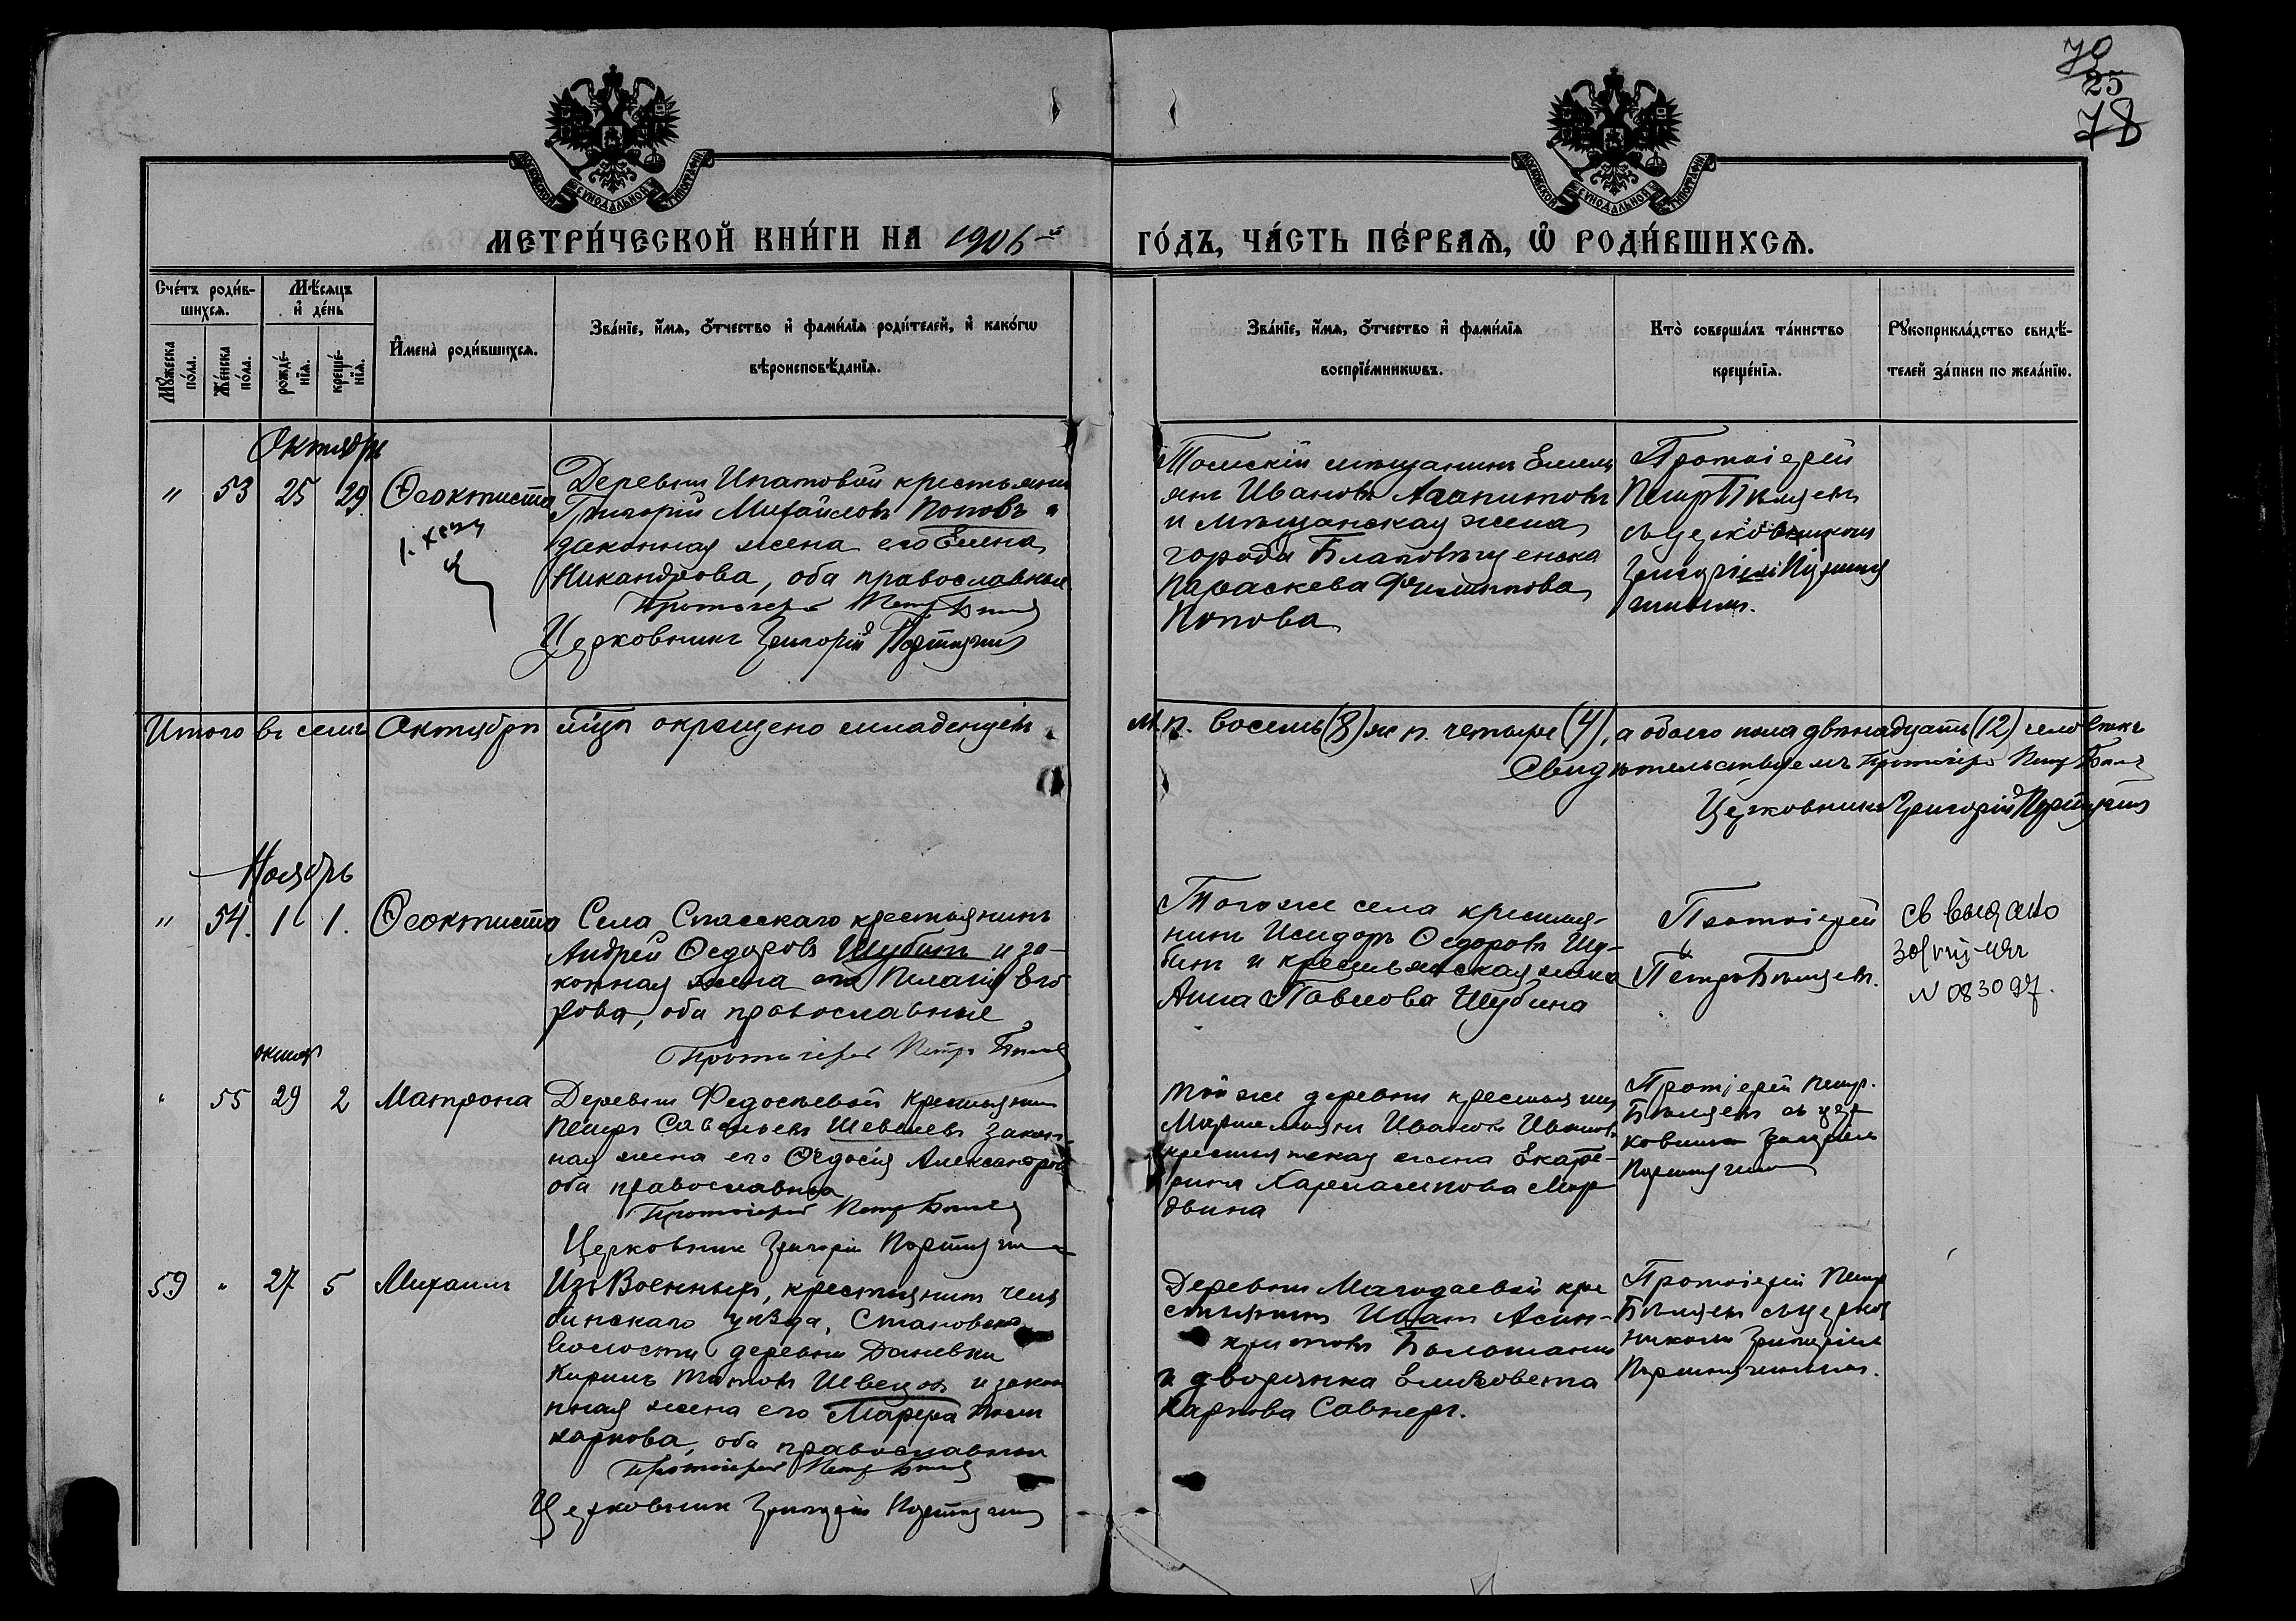 70
25
78
МОСКОВСКОЙ СѴНОДАЛЬНОЙ ТИПОГРАФІИ
МОСКОВСКОЙ СѴНОДАЛЬНОЙ ТИПОГРАФІИ
МЕТРИ́ЧЕСКОЙ КНИ́ГИ НА 1906-й ГО́ДЪ, ЧА́СТЬ ПЕ́РВАѦ, Ѽ РОДИ́ВШИХСѦ.
Счéтъ роди́в-
шихсѧ.
Мѣ́сѧцъ
и҆ дéнь
Мꙋ́жеска
по́ла.
Же́нска
по́ла.
рождé-
нїѧ.
крещé-
нїѧ.
И҆мена̀ роди́вшихсѧ.
Зва́нїе, и҆́мѧ, ѻ҆́тчество и҆ фами́лїѧ роди́телей, и҆ како́гѡ
вѣроисповѣ́данїѧ.
Зва́нїе, и҆́мѧ, ѻ҆́тчество и҆ фами́лїѧ
воспрїéмникѡвъ.
Кто̀ соверша́лъ та́инство
крещéнїѧ.
Рꙋкоприкла́дство свидѣ́-
телей за́писи по жела́нїю.
Октябрь
" 53 25 29 Ѳеоктиста
Деревни Ипатовой крестьянинъ
Григорій Михайловъ Поповъ и
законная жена его Елена
Никандрова, оба православные
Протоіерей Петръ
Церковникъ Григорій Портнягинъ
Томскій мѣщанинъ Емель
янъ Ивановъ Агапитовъ
и мѣщанская жена
города Благовѣщенска
Параскева Филиппова
Попова
Протоіерей
Петръ Бѣляевъ
съ церковникомъ
Григоріемъ Портня
гинымъ.
Итого въ семъ Октябрѣ м҃цѣ окрещено младенцевъ
м. п. восемь (8) ж п. четыре (4), а обоего пола двѣнадцать (12) человѣкъ
Свидѣтельствуемъ Протоіерей Петръ
Церковникъ Григорій Портнягинъ
Ноябрь
" 54. 1 1. Ѳеоктиста
Села Спасскаго крестьянинъ
Андрей Ѳедоровъ Шубинъ и за-
конная жена его Пелагія Его
рова, оба православные
Протоіерей Петръ
Того же села крестья-
нинъ Исидоръ Ѳедоровъ Шу-
бинъ и крестьянская жена
Анна Павлова Шубина
Протоіерей
Петръ Бѣляевъ.
св выдано
N 083097.
октяб
" 55 29 2 Матрона
Деревни Федосѣевой крестьянинъ
Петръ Савельевъ Шевелевъ закон-
ная жена его Ѳеодосія Александрова
оба православные
Протоіерей Петръ
Церковник Григорій Портнягинъ
той же деревни крестьянинъ
Ивановъ Ивановъ
крестьянская жена Екате-
рина Мор
двина
Протоіерей Петръ
Бѣляевъ съ цер
ковникомъ Григоріемъ
Портнягинымъ
59 " 27 5 Михаилъ
Изъ Военныхъ, крестьянинъ Челя
бинскаго уѣзда, Становской
волости деревни Даневки
Кирилъ Титовъ Швецовъ и закон
нная жена его Марѳа Поли
карпова, оба православные
Протоіерей Петръ
Церковник Григорій Портнягинъ
Деревни Магадаевой кре
стьянинъ Иванъ Асин-
критовъ
и дворянка Елизавета
Карпова
Протоіерей Петръ
Бѣляевъ съ церков
никомъ Григоріемъ
Портнягинымъ.